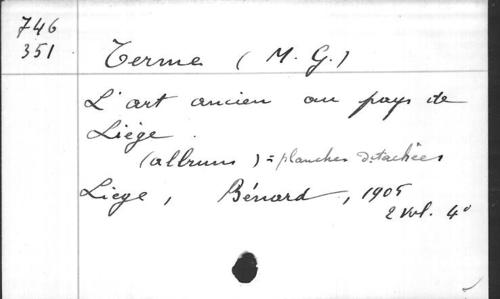 746
351
Terme (M. G.)
L'art ancien au pays de
Liège.
(album) = planches détachées
Liege, Bénard, 1905
2 vol. 4°